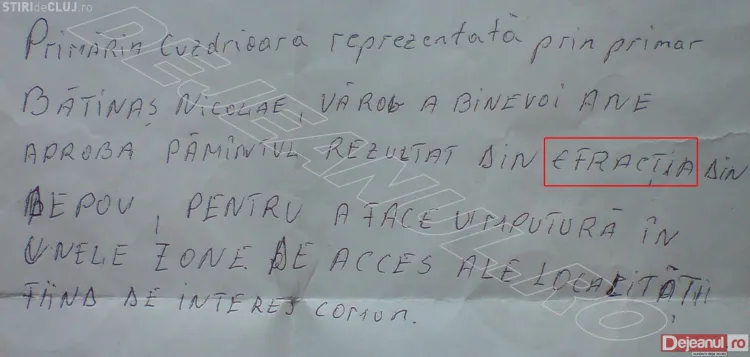 ȘTIRIdeCLUJ.ro
PRIMĂRIA Cuzdrioara reprezentată prin primar
BĂTINAȘ NICOLAE, VĂ ROG A BINEVOI A NE
APROBA PĂMÎNTUL REZULTAT DIN EFRACȚIA DIN
DEPOU, PENTRU A FACE UMPUTURĂ ÎN
UNELE ZONE DE ACCES ALE LOCALITĂȚII
FIIND DE INTERES COMUN.
DEJEANUL.RO
Dejeanul.ro